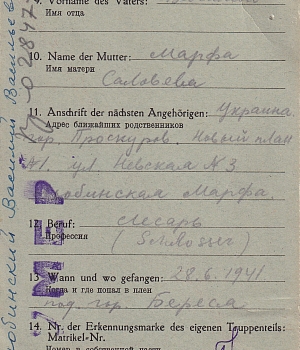 9. Vorname des Vaters:
Имя отца
10. Name der Mutter: Марфа
Имя матери
Саловева
11. Anschrift der nächsten Angehörigen: Украина
Адрес ближайших родственников
гор. Проскуров. Новый план
А1 ул Невская N 3
Марфа
12. Beruf: Слесарь
Профессия
(Schlosser)
13. Wann und wo gefangen: 28.6.1941
Когда и где попал в плен
под гор. Береса
14. Nr. der Erkennungsmarke des eigenen Truppenteils:
Matrikel-Nr.
УМЕР
Василий Васильев